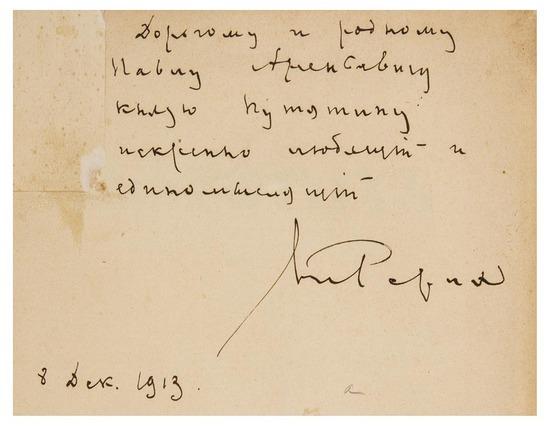 Дорогому и родному
Павлу Арсеньевичу
князю Путятину
искренно любящий и
единомыслящий
Рерих
8 Дек. 1913.